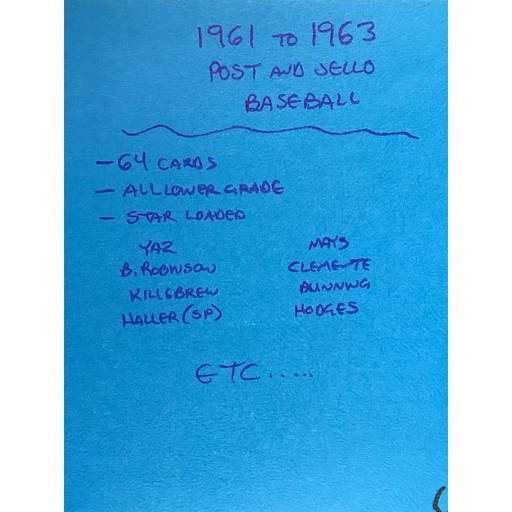 1961 TO 1963
POST AND JELLO
BASEBALL
- 64 CARDS
- ALL LOWER GRADE
- STAR LOADED
YAZ MAYS
B. ROBINSON CLEMENTE
KILLEBREW BUNNING
HALLER (SP) HODGES
ETC.....